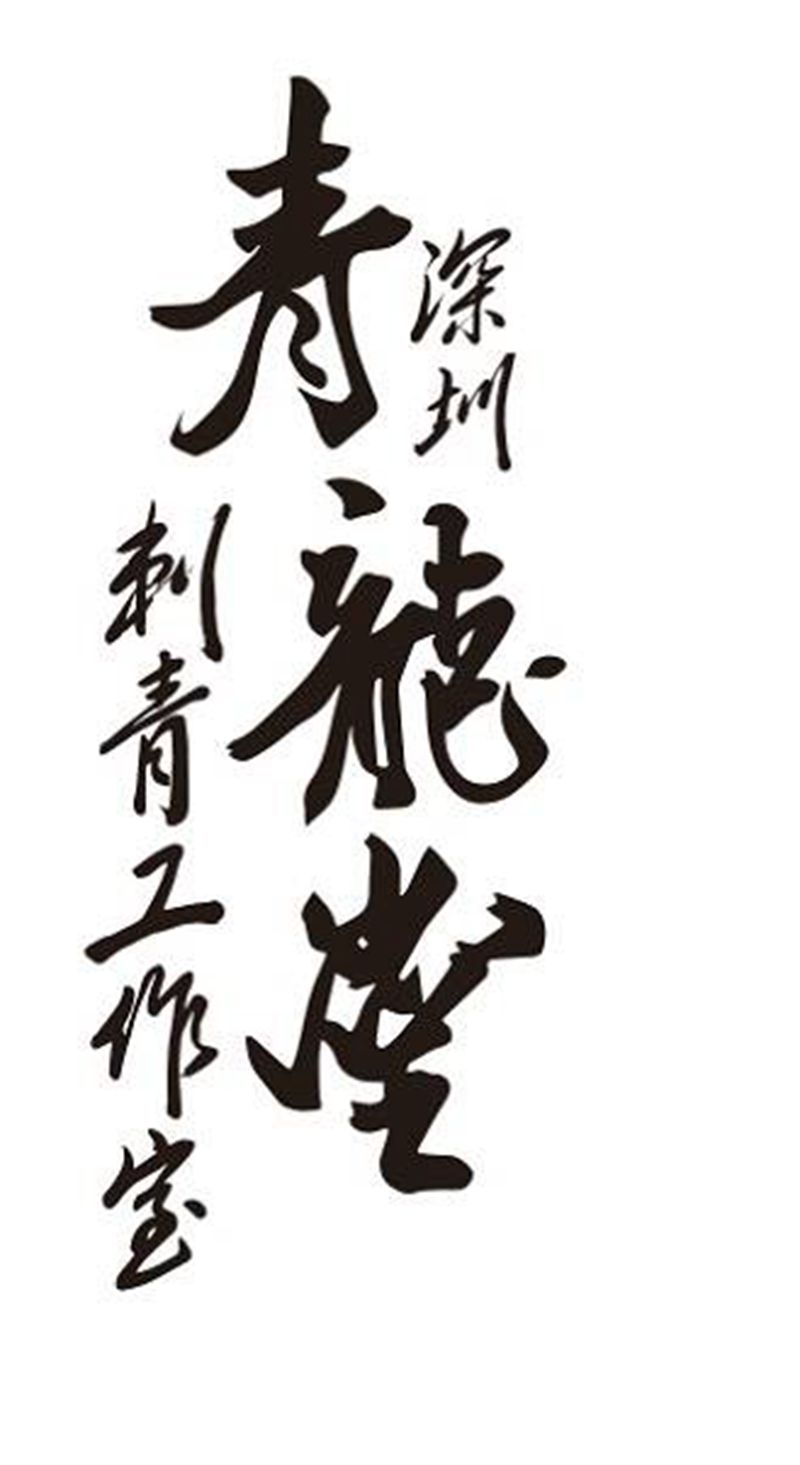 深圳
青龍堂
刺青工作室